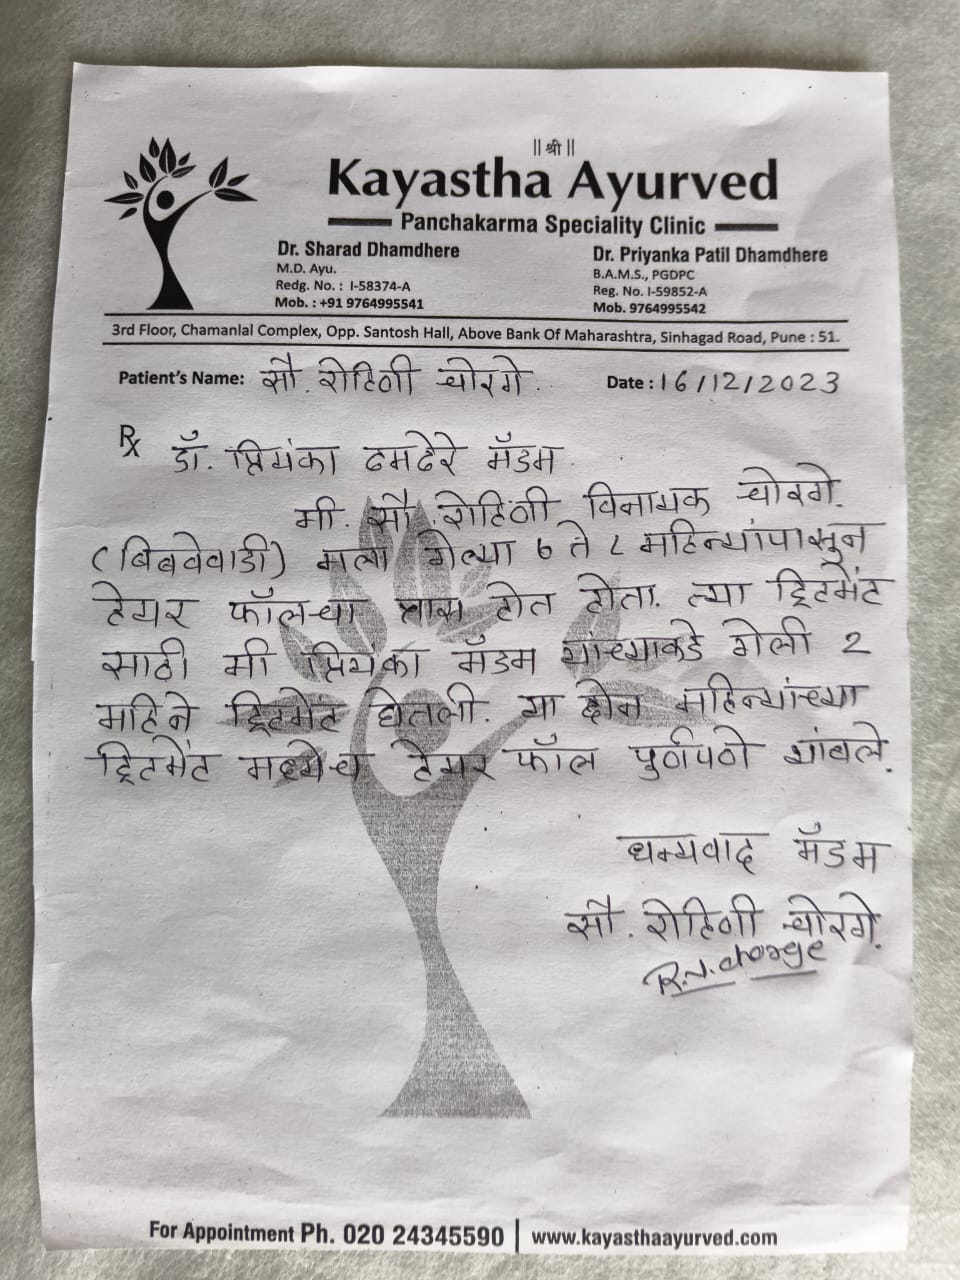 || श्री ||
Kayastha Ayurved
Panchakarma Speciality Clinic
Dr. Sharad Dhamdhere
M.D. Ayu.
Redg. No. : I-58374-A
Mob. : +91 9764995541
Dr. Priyanka Patil Dhamdhere
B.A.M.S., PGDPC
Reg. No. I-59852-A
Mob. 9764995542
3rd Floor, Chamanlal Complex, Opp. Santosh Hall, Above Bank Of Maharashtra, Sinhagad Road, Pune : 51.
Patient's Name: सौ. रोहिणी चोरगे. Date : 16/12/2023
℞ डॉ. प्रियंका ढमढेरे मॅडम.
मी. सौ. रोहिणी विनायक चोरगे.
(बिबवेवाडी) मला गेल्या ७ ते ८ महिन्यांपासून
हेयर फॉलचा त्रास होत होता. त्या ट्रिटमेंट
साठी मी प्रियंका मॅडम यांच्याकडे गेली 2
महिने ट्रिटमेंट घेतली. या दोन महिन्यांच्या
ट्रिटमेंट मध्येच हेयर फॉल पुर्णपणे थांबले.
धन्यवाद मॅडम
सौ. रोहिणी चोरगे.
R.V. chorge
For Appointment Ph. 020 24345590 | www.kayasthaayurved.com